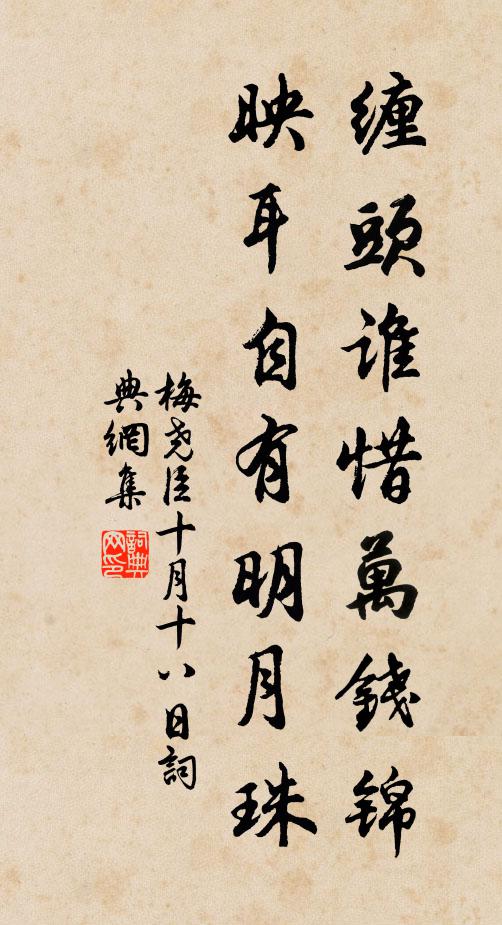 纏頭誰惜萬錢錦
映耳自有明月珠
梅堯臣十月十八日詞
典網集
詞典
网印